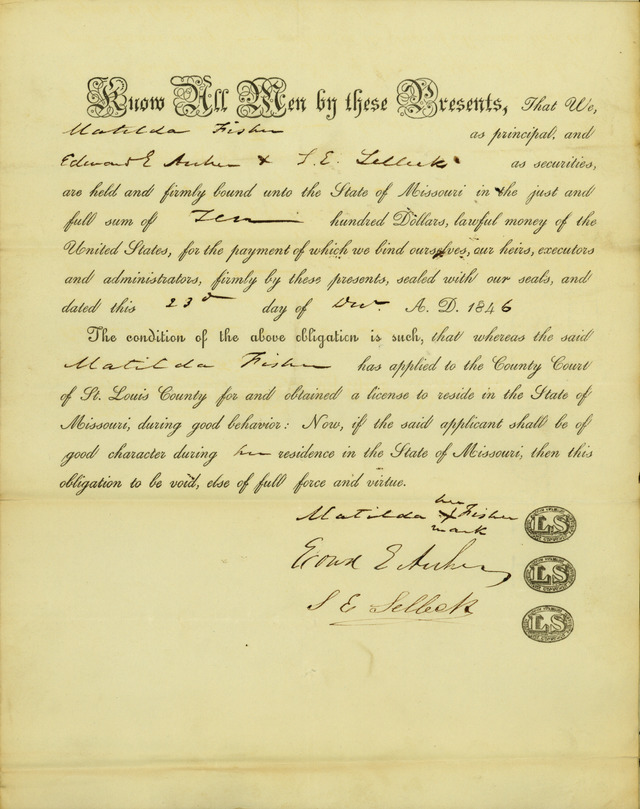 Know All Men by these Presents, That We,
Matilda Fisher as principal, and
Edward E Archer & S. E. Selleck as securities,
are held and firmly bound unto the State of Missouri in the just and
full sum of Ten hundred Dollars, lawful money of the
United States, for the payment of which we bind ourselves, our heirs, executors
and administrators, firmly by these presents, sealed with our seals, and
dated this 23d day of Dec. A. D. 1846
The condition of the above obligation is such, that whereas the said
Matilda Fisher has applied to the County Court
of St. Louis County for and obtained a license to reside in the State of
Missouri, during good behavior: Now, if the said applicant shall be of
good character during her residence in the State of Missouri, then this
obligation to be void, else of full force and virtue.
her
Matilda X Fisher
mark
LS
E E Archer
LS
S E Selleck
LS